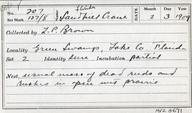 No. 207 Little MONTH DAY YEAR
137/8 Sandhill Crane 2 3 1909
Collected by L.P. Brown
Locality Green Swamp, Lake Co. Florida
Set 2 Identity sure Incubation partial
Nest usual mass of dead reeds and
rushes in open wet prairie